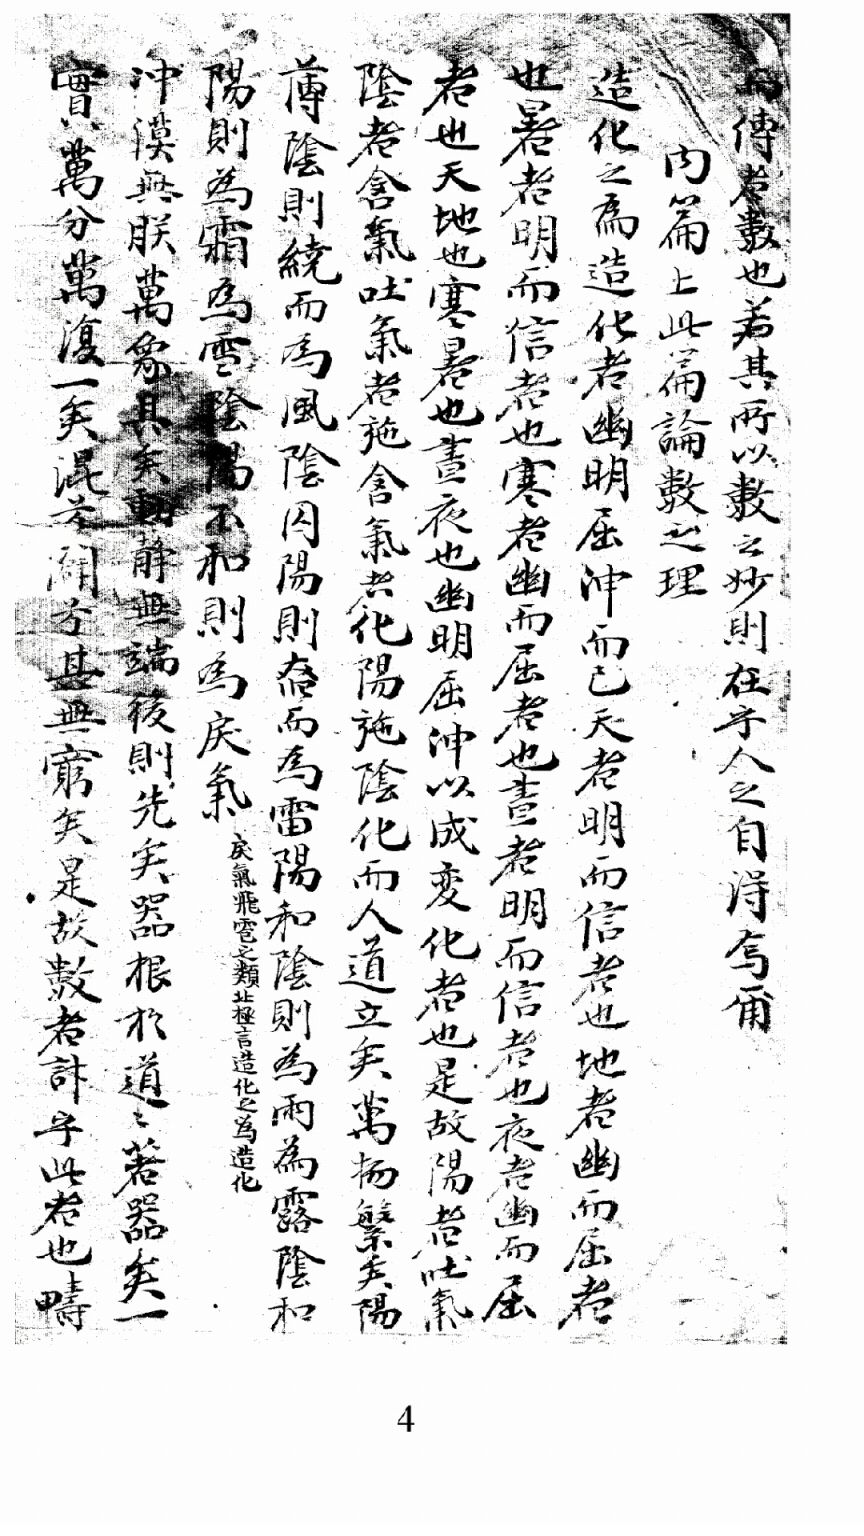 而傳者數也若其所以數之妙則在乎人之自得焉爾
内篇上此篇論數之理
造化之爲造化者幽明屈沖而已天者明而信者也地者幽而屈者
也暑者明而信者也寒者幽而屈者也晝者明而信者也夜者幽而屈
者也天地也寒暑也晝夜也幽明屈沖以成变化者也是故陽者吐氣
陰者含氣吐氣者施含氣者化陽施陰化而人道立矣萬物繁矣陽
薄陰則繞而為風陰囚陽則奮而為雷陽和陰則為雨為露陰和
陽則為霜為雪陰陽不和則為戾氣
戾氣飛雹之類此極言造化之為造化
沖漠無朕萬象具矣動静無端後則先矣器根於道々著器矣一
實萬分萬復一矣混兮闢兮其無窮矣是故數者計乎此者也疇
4